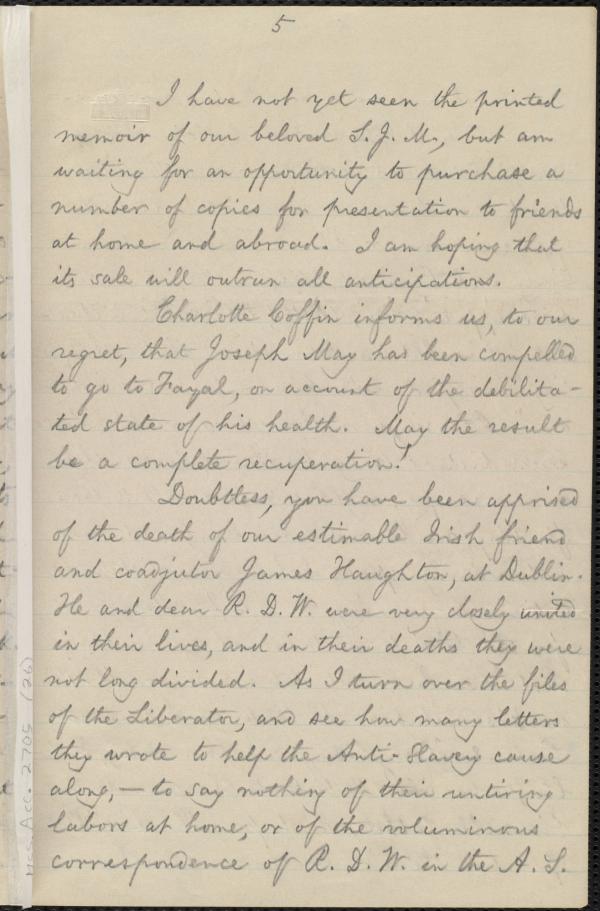 5
I have not yet seen the printed
memoir of our beloved S. J. M., but am
waiting for an opportunity to purchase a
number of copies for presentation to friends
at home and abroad. I am hoping that
its sale will outrun all anticipations.
Charlotte Coffin informs us, to our
regret, that Joseph May has been compelled
to go to Fayal, on account of the debilita-
ted state of his health. May the result
be a complete recuperation!
Doubtless, you have been apprised
of the death of our estimable Irish friend
and coadjutor James Haughton, at Dublin.
He and dear R. D. W. were very closely united
in their lives, and in their deaths they were
not long divided. As I turn over the files
of the Liberator, and see how many letters
they wrote to help the Anti-Slavery cause
along,— to say nothing of their untiring
labors at home, or of the voluminous
correspondence of R. D. W. in the A. S.
MS. Acc. 2705 (26)